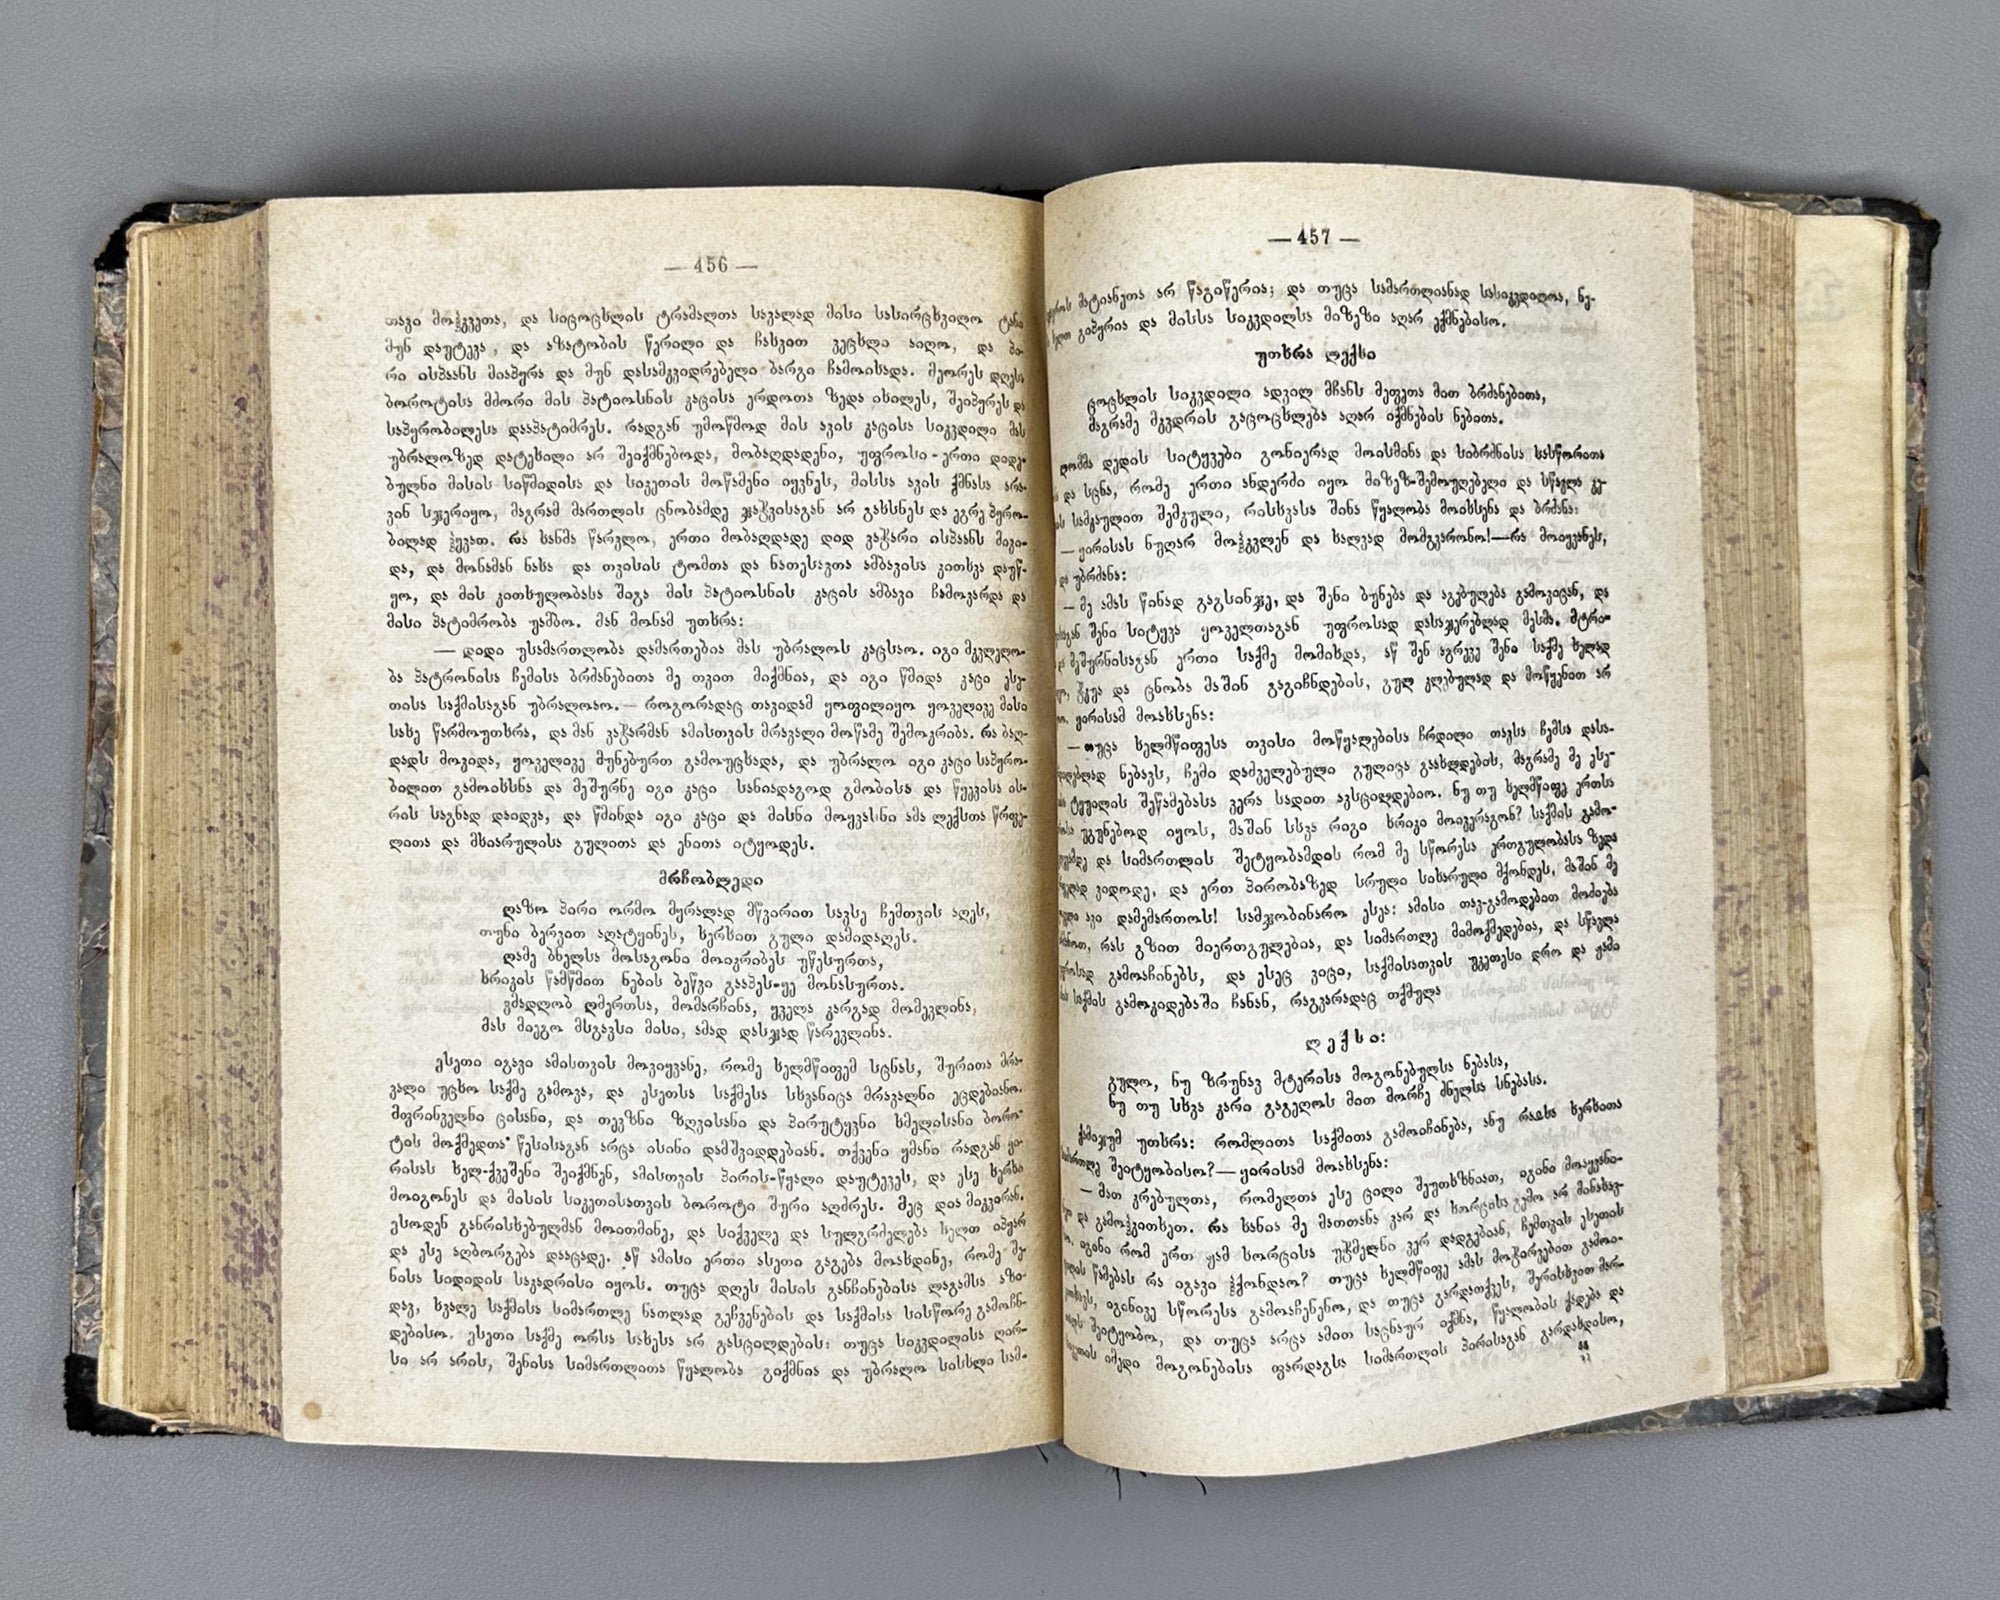 — 456 —
თავი მოჰკვეთა, და სიცოცხლის ტრამალთა სავალად მისი სასირცხვილო ტანი
მუნ დაუტევა, და აზატობის წერილი და ჩასვით ვეცხლი აიღო, და პი-
რი ისპაანს მიაპურა და მუნ დასამკვიდრებელი ბარგი ჩამოისადა. მეორეს დღესა
ბოროტისა მძორი მის პატიოსნის კაცისა ერდოთა ზედა იხილეს, შეიპურეს და
საპურობილესა დააპატიმრეს. რადგან უმოწმოდ მის ავის კაცისა სიკვდილი მას
უბრალოზედ დატეხილი არ შეიქმნებოდა, მობაღდადენი, უფროსი-ერთი დიდე-
ბულნი მისის სიწმიდისა და სიკეთის მოწამენი იყვნეს, მისსა ავის ქმნასა არა-
ვინ სჯერიყო, მაგრამ მართლის ცნობამდე ჯაჭვისაგან არ გახსნეს და ეგრე პურო-
ბილად ჰყვათ. რა ხანმა წარვლო, ერთი მობაღდადე დიდ ვაჭარი ისპაანს მივი-
და, და მონამან ნახა და თვისის ტომთა და ნათესავთა ამბავისა კითხვა დაუწ-
ყო, და მის კითხულობასა შიგა მის პატიოსნის კაცის ამბავი ჩამოვარდა და
მისი პატიმრობა უამბო. მან მონამ უთხრა:
— დიდი უსამართლობა დამართებია მას უბრალოს კაცსაო. იგი მკვლელო-
ბა პატრონისა ჩემისა ბრძანებითა მე თვით მიქმნია, და იგი წმიდა კაცი ესე-
თისა საქმისაგან უბრალოაო.— როგორადაც თავიდამ ყოფილიყო ყოველივე მისი
სახე წარმოუთხრა, და მან ვაჭარმან ამისთვის მრავალი მოწამე შემოკრიბა. რა ბაღ-
დადს მოვიდა, ყოველივე მუნებურთ გამოუცხადა, და უბრალო იგი კაცი საპურო-
ბილით გამოიხსნა და მეშურნე იგი კაცი სანიადაგოდ გმობისა და წყევისა ის-
რის საგნად დაიდვა, და წმინდა იგი კაცი და მისნი მოყვასნი ამა ლექსთა წრფე-
ლითა და მხიარულისა გულითა და ენითა იტყოდეს.
მრჩობლედი
ღაზო პირი ორმო მურალად მწვირით სავსე ჩემთვის აღეს,
თუნი ბერვით აღატყინეს, ხერხით გული დამიდაღეს.
ღამე ბნელსა მოსაგონი მოიკრიბეს უწესურთა,
ხრიკის წამწმით ნების ბეწვი გააპეს-ყე მონასურთა.
გმადლობ ღმერთსა, მომარჩინა, ყველა კარგად მომევლინა,
მას მიეგო მსგავსი მისი, ამად დასჯად წარევლინა.
ესეთი იგავი ამისთვის მოვიყვანე, რომე ხელმწიფემ სცნას, შურითა მრა-
ვალი უცხო საქმე გამოვა, და ესეთსა საქმესა სხვანიცა მრავალნი ეცდებიანო.
მფრინველნი ცისანი, და თევზნი ზღვისანი და პირუტყვნი ხმელისანი ბორო-
ტის მოქმედთა წესისაგან არცა ისინი დამშვიდდებიან. თქვენი ყმანი რადგან ყი-
რისას ხელ-ქვეშენი შეიქმნენ, ამისთვის პირის-წყალი დაუტევეს, და ესე ხერხი
მოიგონეს და მისის სიკეთისათვის ბოროტი შური აღძრეს. მეც დია მიკვირან.
ესოდენ განრისხებულმან მოითმინე, და სიქველე და სულგრძელება ხელთ იპყარ
და ესე აღბორგება დააცადე. აწ ამისი ერთი ასეთი გაგება მოახდინე, რომე შე-
ნისა სიდიდის საკადრისი იყოს. თუცა დღეს მისის განჩინებისა ლაგამსა აზი-
დავ, ხვალე საქმისა სიმართლე ნათლად გეჩვენების და საქმისა სისწორე გამოჩნ-
დებისო. ესეთი საქმე ორსა სახესა არ გასცილდების: თუცა სიკვდილისა ღირ-
სი არ არის, შენისა სიმართლითა წყალობა გიქმნია და უბრალო სისხლი სამ-
— 457 —
მატიანეთა არ წაგიწერია; და თუცა სამართლიანად სასიკვდილოა, ნე-
გიპურია და მისსა სიკვდილსა მიზეზი აღარ ექმნებისო.
უთხრა ლექსი
ცოცხლის სიკვდილი ადვილ მჩანს მეფეთა მით ბრძანებითა,
მაგრამე მკვდრის გაცოცხლება აღარ იქმნების ნებითა.
ლომმა დედის სიტყვები გონიერად მოისმინა და სიბრძნისა სასწორითა
და სცნა, რომე ერთი ანდერძი იყო მიზეზ-შემოუღებელი და სწავლა კე-
სამკაულით შემკული, რისხვასა შინა წყალობა მოიხსენა და ბრძანა:
— ყირისას ნუღარ მოჰკვლენ და ხალვად მომგვარონო!—რა მოიყვანეს,
და უბრძანა:
— მე ამას წინად გაგსინჯე, და შენი ბუნება და აგებულება გამოვიცან, და
შენი სიტყვა ყოველთაგან უფროსად დასაჯერებლად მესმა. მტრი-
და მეშურნისაგან ერთი საქმე მომიხდა, აწ შენ აგრევე შენი საქმე ხელად
ჭკუა და ცნობა მაშინ გაგიჩნდების, გულ კლებულად და მოწყენით არ
ყირისამ მოახსენა:
— თუცა ხელმწიფესა თვისი მოწყალებისა ჩრდილი თავსა ჩემსა დასა-
ნებავს, ჩემი დაძველებული გულიცა გაახლდების, მაგრამე მე ესე-
ტყუილის შეწამებასა ვერა სადით ავსცილდებიო. ნუ თუ ხელმწიფე ერთსა
უგუნებოდ იყოს, მაშინ სხვა რიგი ხრიკი მოიკერაგონ? საქმის გამო-
და სიმართლის შეტყობამდის რომ მე სწორესა ერთგულობასა ზედა
ვიდოდე, და ერთ პირობაზედ სრული სიხარული მქონდეს, მაშინ მე
ავი დამემართოს! სამჯობინარო ესეა: ამისი თავ-გამოდებით მოძიება
რას გზით მიერთგულებია, და სიმართლე მიმოქმედებია, და სწავლა
გამოაჩინებს, და ესეც ვიცი, საქმისათვის უკეთესი დრო და ჟამი
საქმის გამოკიდებაში ჩანან, რაგვარადაც თქმულა
ლექსი:
გულო, ნუ ზრუნავ მტერისა მოგონებულსა ნებასა,
ნუ თუ სხვა კარი გაგეღოს მით მორჩე ძნელსა სნებასა.
ქამიჯუმ უთხრა: რომლითა საქმითა გამოიჩინება, ანუ რაჲსა ხერხითა
შეიტყობისო?— ყირისამ მოახსენა:
— მათ კრებულთა, რომელთა ესე ცილი შეუთხზნიათ, იგინი მოაყვანი-
და გამოჰკითხეთ. რა ხანია მე მათთანა ვარ და ხორცისა გემო არ მინახავ-
იგინი რომ ერთ ჟამ ხორცისა უჭმელნი ვერ დადგებიან, ჩემთვის ესეთის
წამებას რა იგავი ჰქონდაო? თუცა ხელმწიფე ამას მოჭირვებით გამოი-
იგინივე სწორესა გამოაჩენენო, და თუცა გარდათქვეს, შერისხვით მარ-
შეიტყობო, და თუცა არცა ამით საცნაურ იქმნა, წყალობის ქადება და
იმედი მოგონებისა ფარდაგსა სიმართლის პირისაგან გარდახდისო,